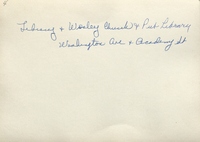 Library & Wesley Church & Pub. Library
Washington Ave & Academy St